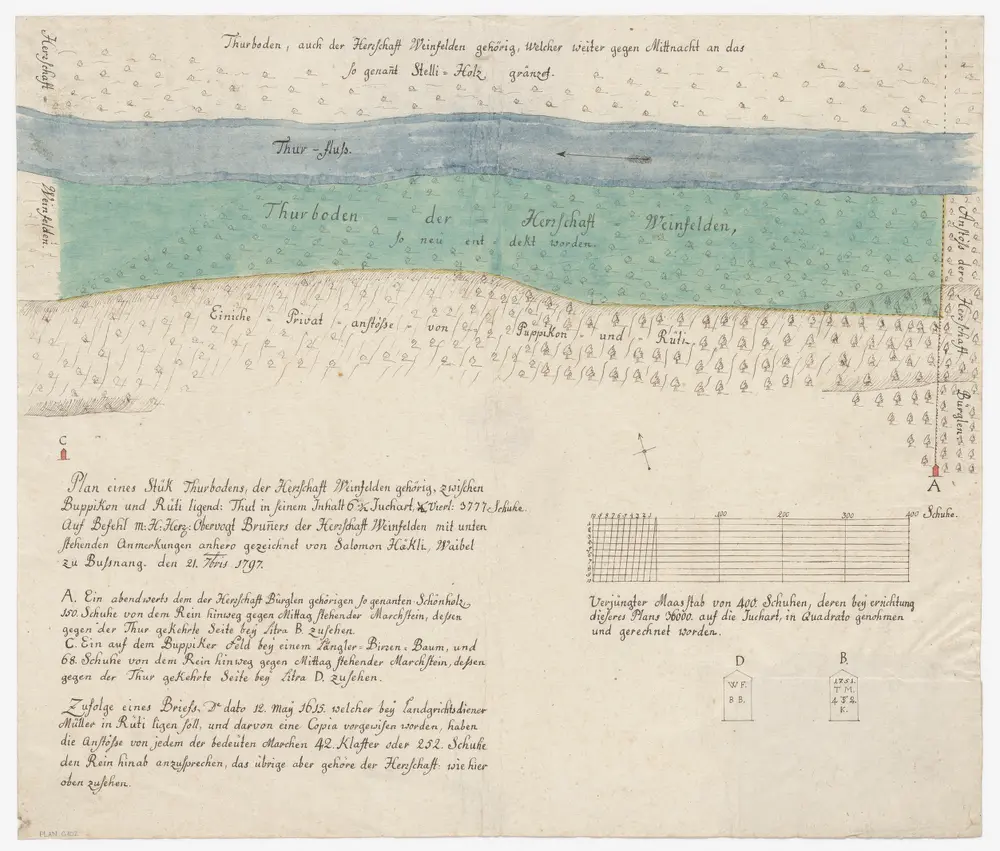 Thurboden, auch der Herrschaft Weinfelden gehörig, Welcher weiter gegen Mittnacht an das
so genant Stelli=Holz gränzet.
Herrschaft -
Weinfelden.
Thur-fluss.
Thurboden = der = Herrschaft = Weinfelden,
so neu ent=dekt worden.
Anstöss der Herrschaft Bürglen.
Einiche = Privat = anstösse = von = Puppikon = und = Rüti.
C
A
Plan eines Stük Thurbodens, der Herrschaft Weinfelden gehörig, zwischen
Buppikon und Rüti ligend: Thut in seinem Inhalt 6 Juchart, Vierl: 3777 Schuhe.
Auf Befehl m: H: Herr: Obervogt Bruñers der Herrschaft Weinfelden mit unten
stehenden Anmerkungen anhero gezeichnet von Salomon Häkli, Waibel
zu Bussnang. den 21. 7bris 1797.
A. Ein abendwerts dem der Herrschaft Bürglen gehörigen so genanten Schönholz,
150. Schuhe von dem Rein hinweg gegen Mittag stehender Marchstein, dessen
gegen der Thur gekehrte Seite bey Litra B. zusehen.
C. Ein auf dem Buppiker Feld bey einem Längler=Birren=Baum, und
68. Schuhe von dem Rein hinweg gegen Mittag stehender Marchstein, dessen
gegen der Thur gekehrte Seite bey Litra D. zusehen.
Zufolge eines Briefs, De dato 12. May 1615. welcher bey Landgrichtsdiener
Müller in Rüti ligen soll, und darvon eine Copia vorgewisen worden, haben
die Anstösse von jedem der bedeuten Marchen 42. Klafter oder 252. Schuhe
den Rein hinab anzusprechen, das übrige aber gehöre der Herrschaft: wie hier
oben zusehen.
100 200 300 400 Schuhe.
Verjüngter Maasstab von 400. Schuhen, deren bey errichtung
dieseres Plans 36000. auf die Juchart, in Quadrato genohmen
und gerechnet worden.
D
W F.
B B.
B.
1751.
T M.
4 5 2.
K.